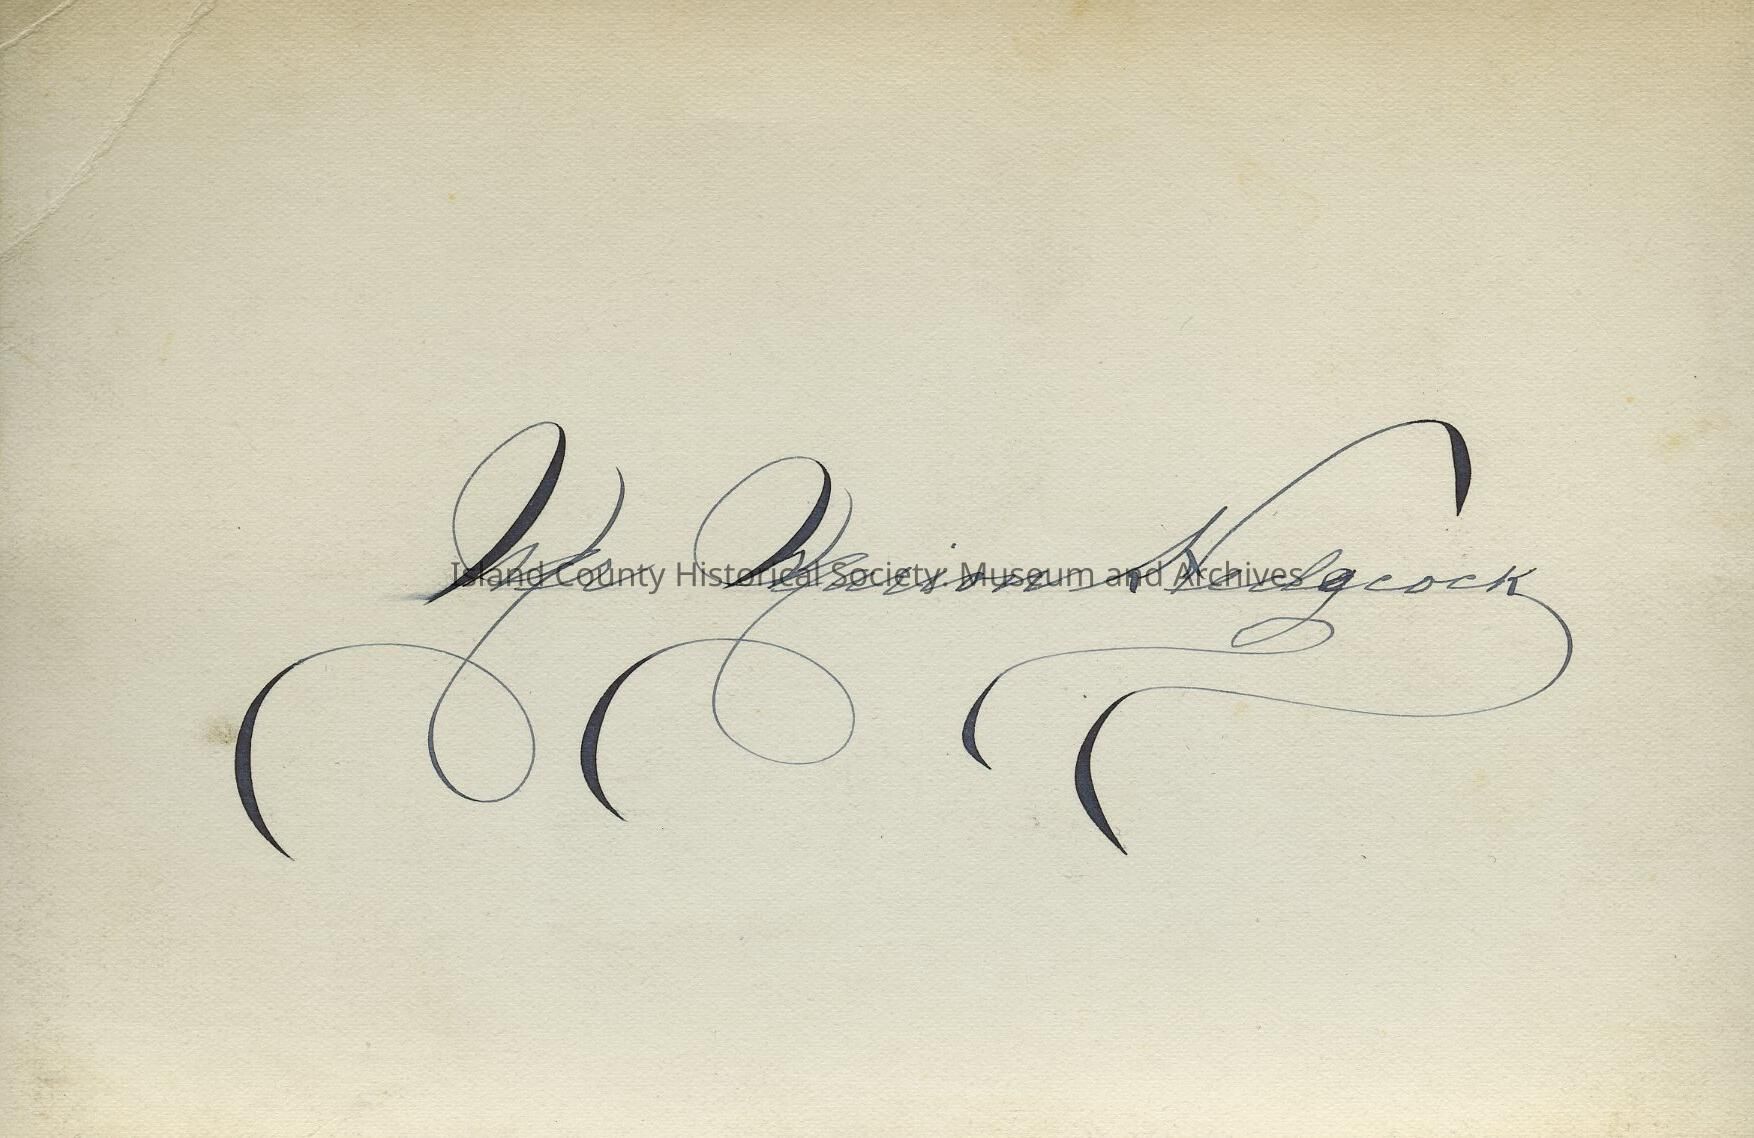 Marion Hedgcock
Island County Historical Society Museum and Archives